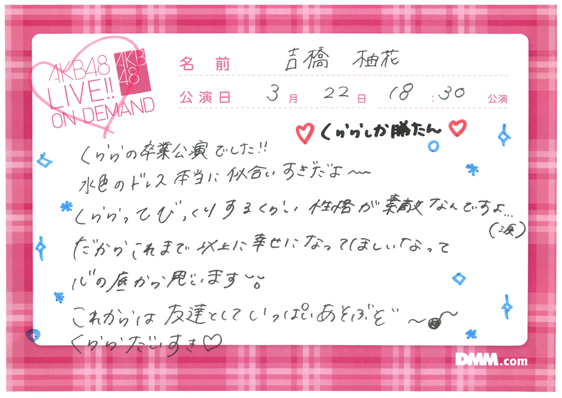 AKB48
LIVE!!
ON DEMAND
AKB
48
名前 吉橋 柚花
公演日 3月 22日 18:30 公演
♡くららしか勝たん♡
くららの卒業公演でした!!
水色のドレス本当に似合いすぎだよ〜
くららってびっくりするくらい性格が素敵なんですよ...
(涙)
だからこれまで以上に幸せになってほしいなって
心の底から思います
これからは友達としていっぱいあそぶぞ〜
くららだいすき♡
DMM.com